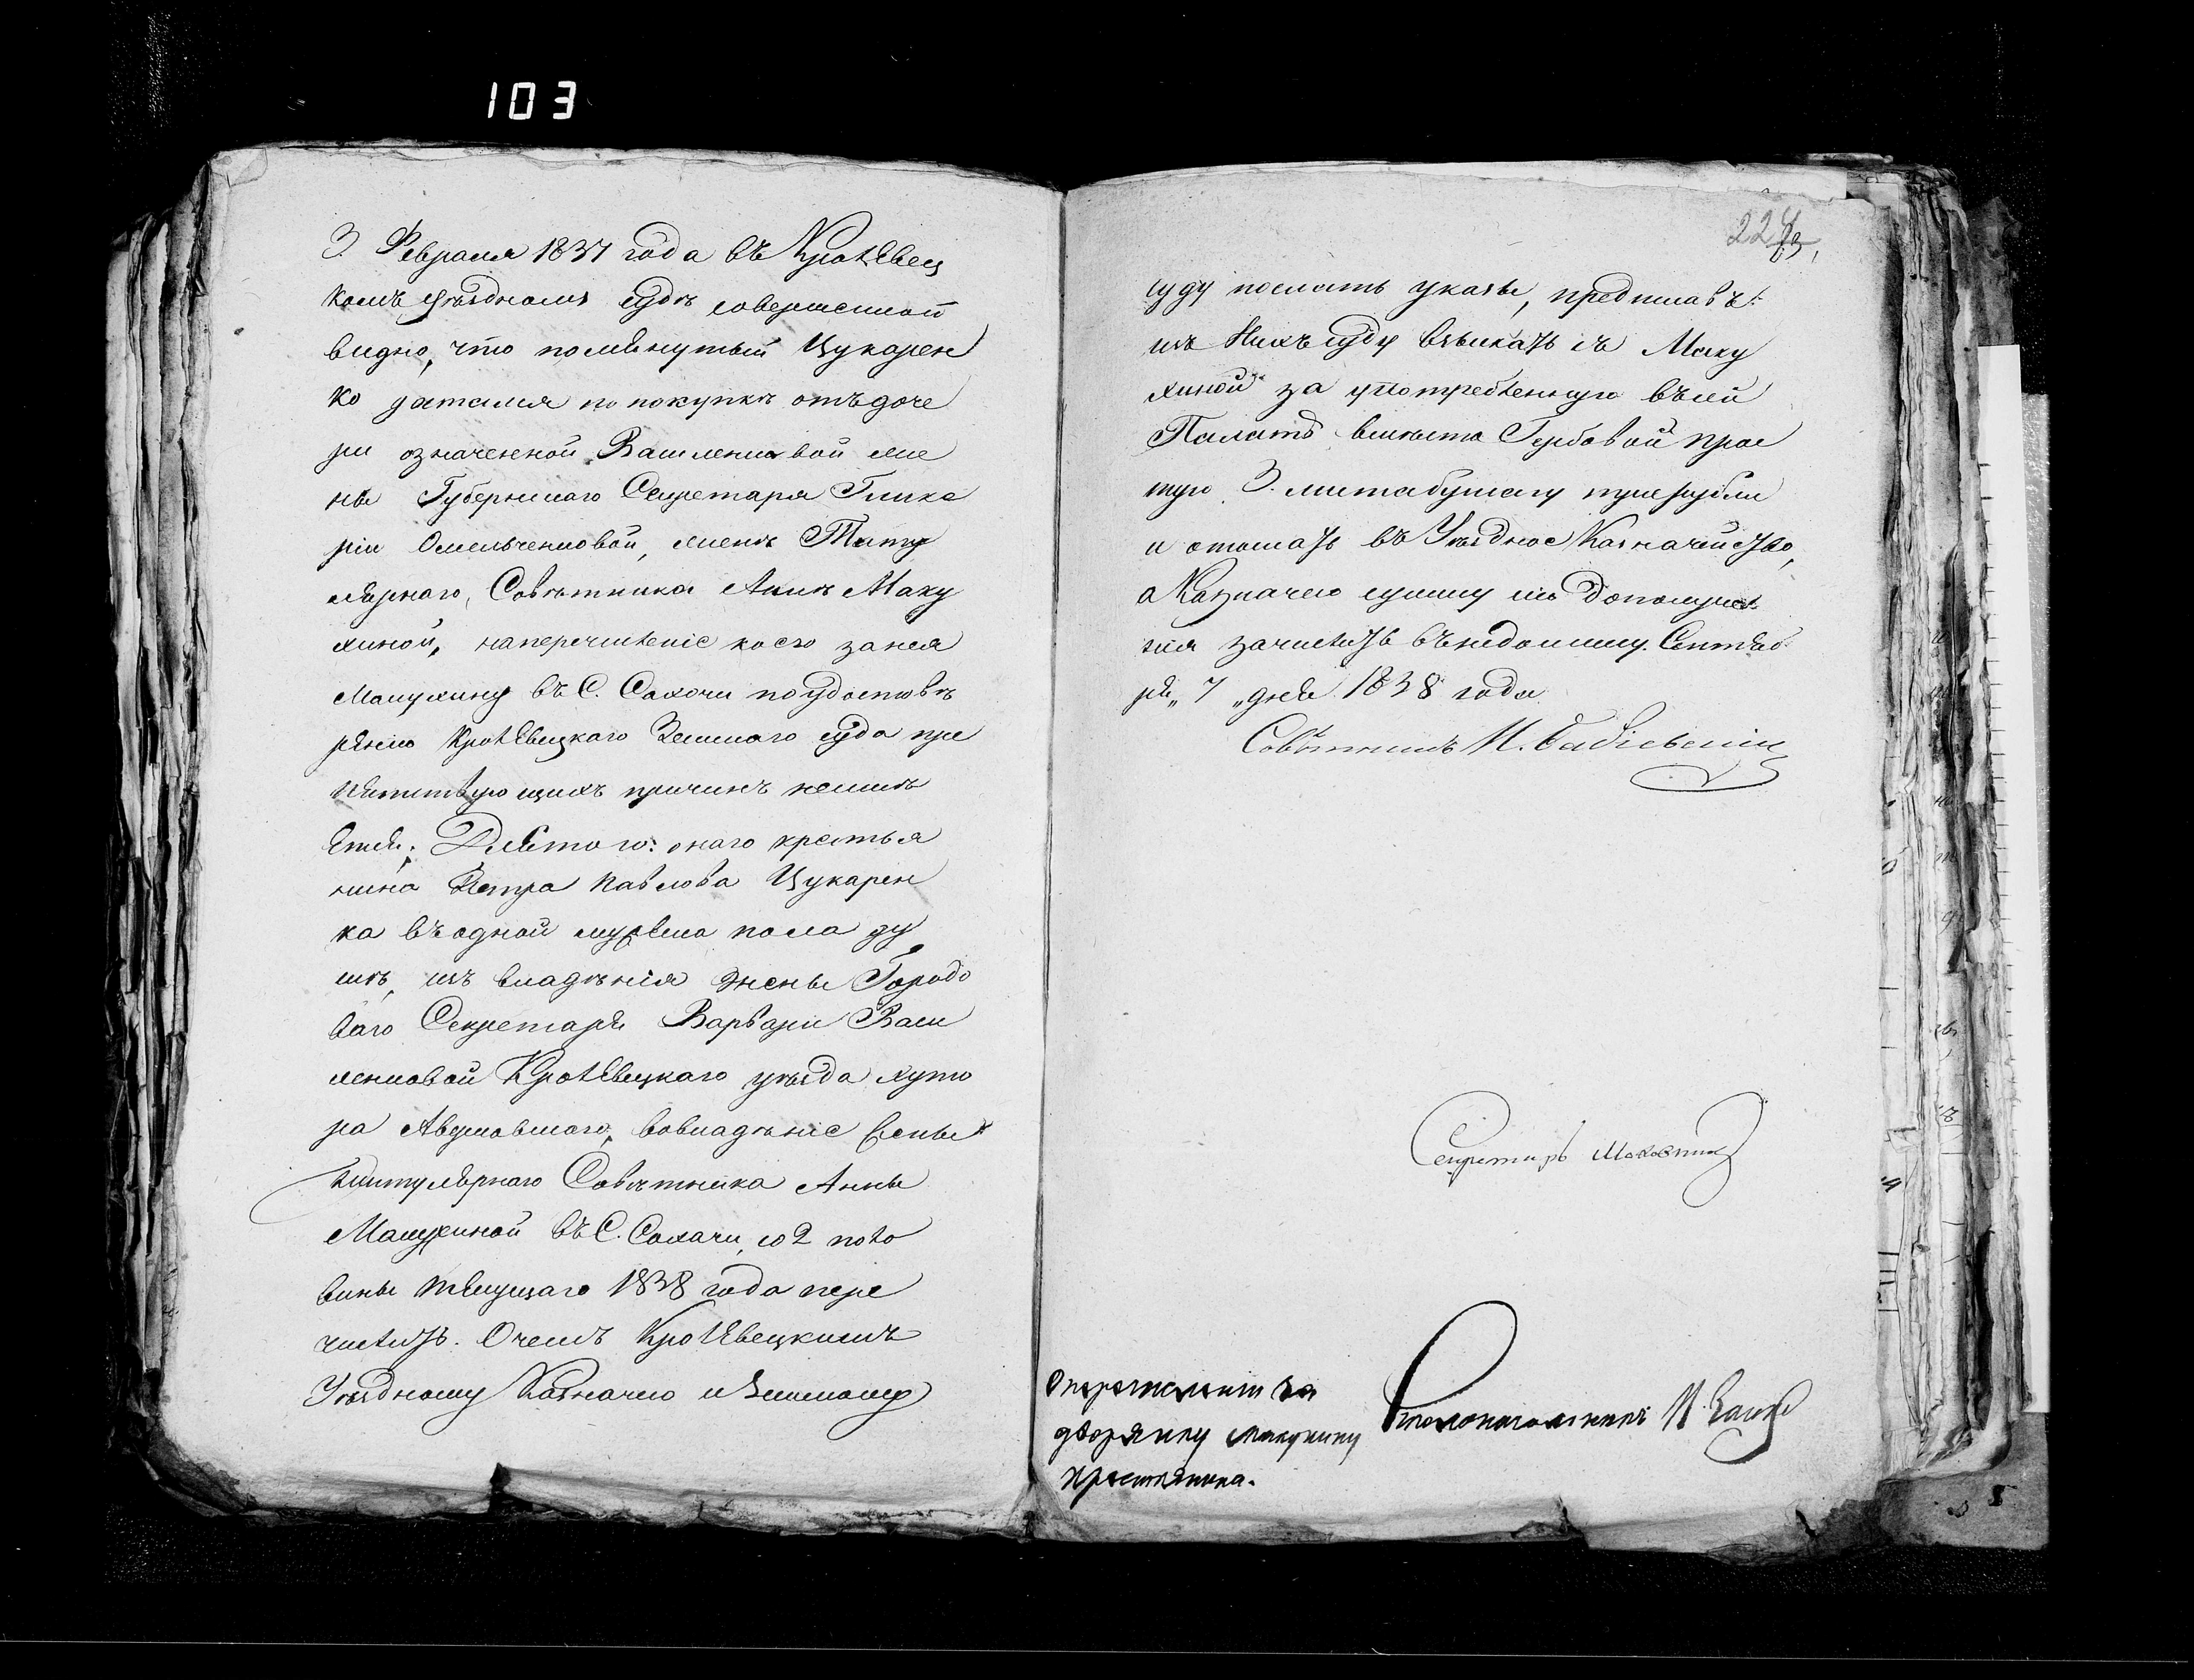 103
3. Февраля 1837 года въ Кролѣвец
комъ уѣздномъ судѣ совершенной
видно, что помянутый Цукарен
ко достался по покупкѣ отъ доче
ри означенной Василенковой же
ны Губернскаго Секретаря Глике
ріи Омельченковой, женѣ Титу
лярнаго Совѣтника Аннѣ Маку
хиной, на перечисленіе коего за нея
Макухину въ С. Сохачи по удостовѣ
ренію Кролѣвецкаго Земскаго суда пре
пятствующихъ причинъ неимѣ
ется; Для того: онаго крестья
нина Петра Павлова Цукарен
ка въ одной мужеска пола ду
шѣ, изъ владѣнія жены Городо
ваго Секретаря Варвари Васи
ленковой Кролѣвецкаго уѣзда хуто
ра, во владѣніе жены
титулярнаго Совѣтника Анны
Макухиной въ С. Сохачи, со 2 поло
вины текущаго 1838 года пере
числить. О чемъ Кролѣвецкимъ
Уѣздному Казначею и Земскому
224
суду послать указы, предписавъ:
изъ нихъ суду взыскать съ Маку
хиной за употребленную въ сей
Палатѣ вмѣсто Гербовой прос
тую 3. листа бумагу три рубли
и отослать въ Уѣздное Казначейство,
а Казначею сумму сію по получе
ніи зачислить въ недоимку. Сентяб
ря „7„ дня 1838 года
Совѣтникъ И.
Секретарь
О перечисленіи за
дворянку Макухину
крестянина.
Столоначальникъ